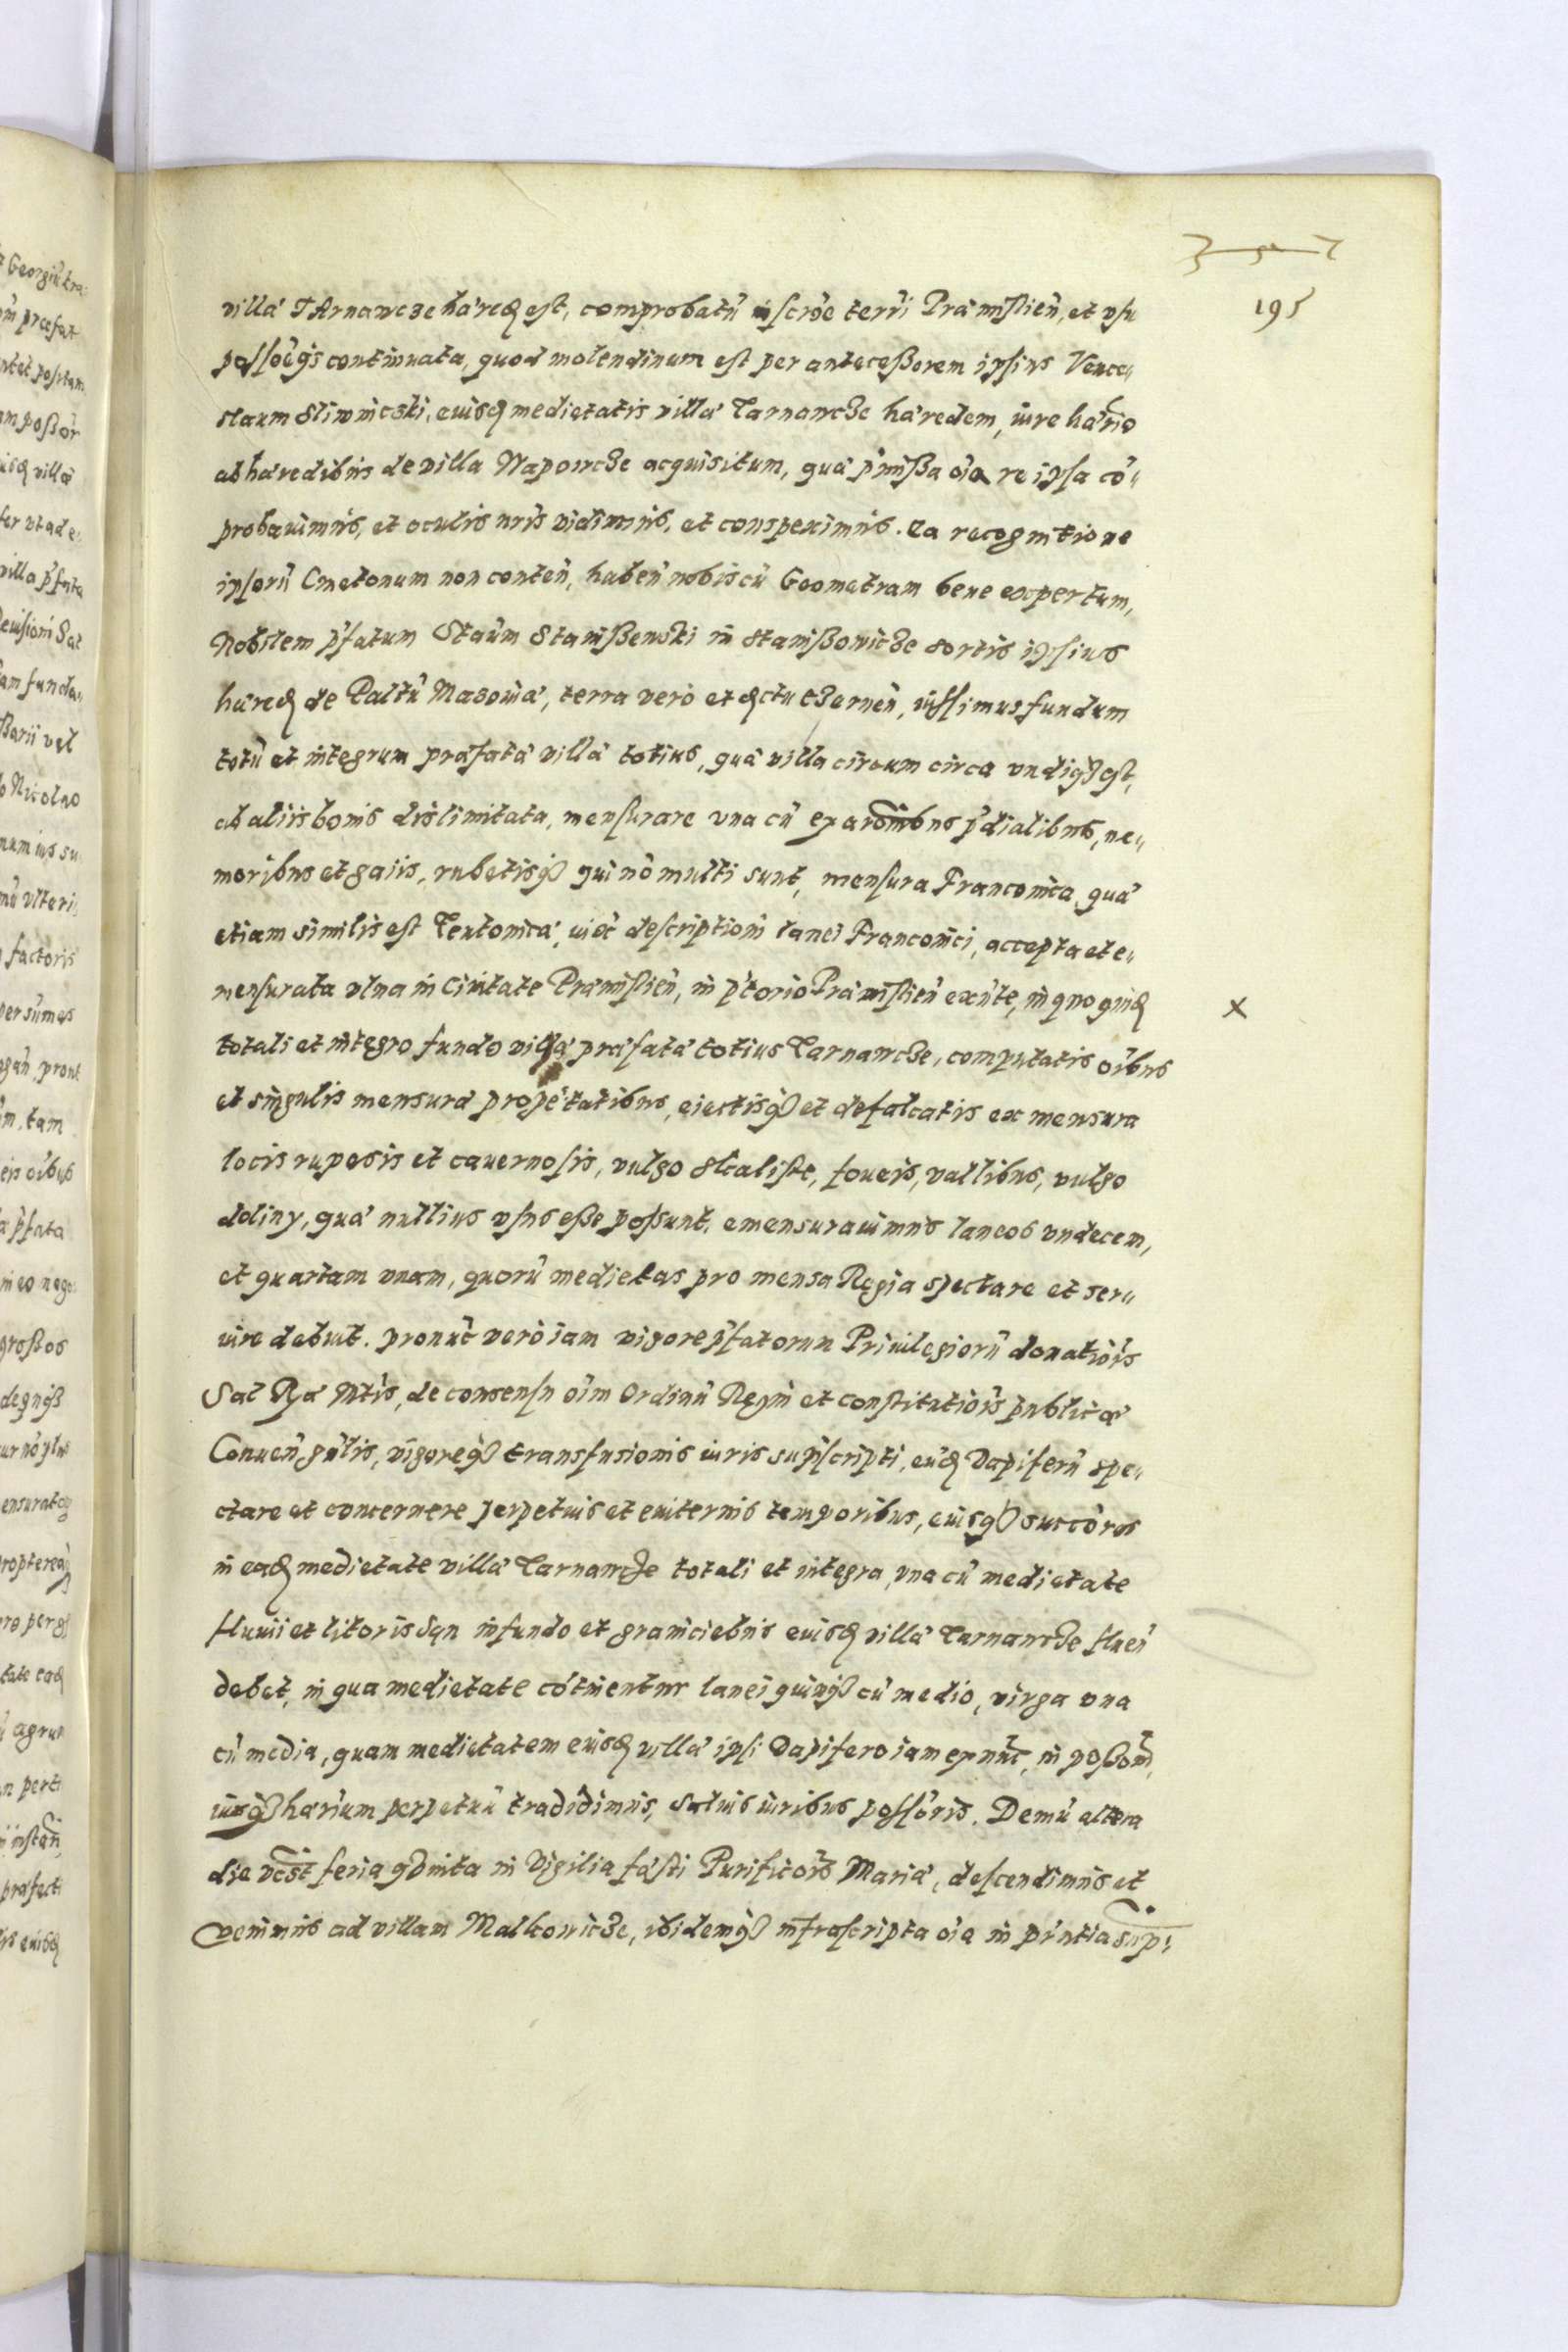 195
villæ TArnawcze hæredẽ est, comprobatũ inscrõe terri Præmislien̄, et vsu
possõeq́s continuata, quod molendinum est per anteceßorem ipsius Vence„
slaum Sliwniczki, eiusdẽ medietatis villæ Tarnawcze hæredem, iure hærio
ab hæredibus de villa Napowcze acquisitum, quæ p̃mißa oĩa re ipsa cõ„
probauimus, et oculis nr̃is vidimus, et conspeximus. Ea recognitione
ipsorũ Cmetonum non conten̄, haben̄ nobiscũ Geometram bene expertum,
Nobilem p̃fatum Staũm Stanißewski in Stanißowicze sortis ipsius
hæredẽ de Paltũ Masouiæ, terra verò et dictu Czernen̄, iussimus fundum
totũ et integrum præfatæ villæ totius, quæ villa circum circa vndiq̃ est,
ab aliis bonis dislimitata, mensurare vna cũ exarõnibus p̃dialibus, ne„
moribus et gaiis, rubetisq̃ qui nõ multi sunt, mensura Franconica, quæ
etiam similis est Teutonicæ, iux̃ descriptionẽ lanei Franconici, accepta et e„
mensurata vlna in Ciuitate Præmislien̄, in p̃torio Præmislien̄ exñte, in quo quidẽ
totali et integro fundo villæ præfatæ totius Tarnawcze, computatis oĩbus
et singulis mensuræ propẽtatibus, eiectisq̃ et defalcatis ex mensura
locis ruposis et cauernosis, vulgo Skaliste, foueis, vallibus, vulgo
doliny, quæ nullius vsus eße poßunt, emensurauimus laneos vndecem,
et quartam vnam, quorũ medietas pro mensa Regia spectare et ser„
uire debuit. pronũc verò iam vigore p̃fatorum Priuilegiorũ donatiõis
Sac Rgæ Mtis, de consensu oĩm Ordinũ Regni et constitutiõis publicæ
Conuen̄ gñlis, vigoreq̃ transfusionis iuris supscripti, eũdẽ Dapiferũ spe„
ctare et concernere perpetuis et euiternis temporibus, eiusq̃ succõres
in eadẽ medietate villæ Tarnawcze totali et integra, vna cũ medietate
fluuii et litoris San in fundo et graniciebus eiusdẽ villæ Tarnawcze fluei
debet, in qua medietate cõtinentur lanei quinq̃ cũ medio, virga vna
cũ media, quam medietatem eiusdẽ villæ ipsi Dapifero iam ex nũc, in poßom̃,
iusq̃ hærium perpetuũ tradidimus, saluis iuribus possõris. Demũ altera
die vcst feria q̃dnita in Vigilia fæsti Purificõis Mariæ, descendimus et
venimus ad villam Malkowicze, ibidemq̃ infrascripta oĩa in p̃ntia sup̃: